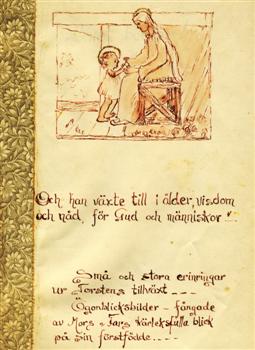 Och han växte till i ålder, visdom
och nåd, för Gud och människor"...
Små och stora erinringar
ur Torstens tillväxt _ _ _
Ögonblicksbilder - fångade
av Mors o Fars kärleksfulla blick
på Sin förstfödde....